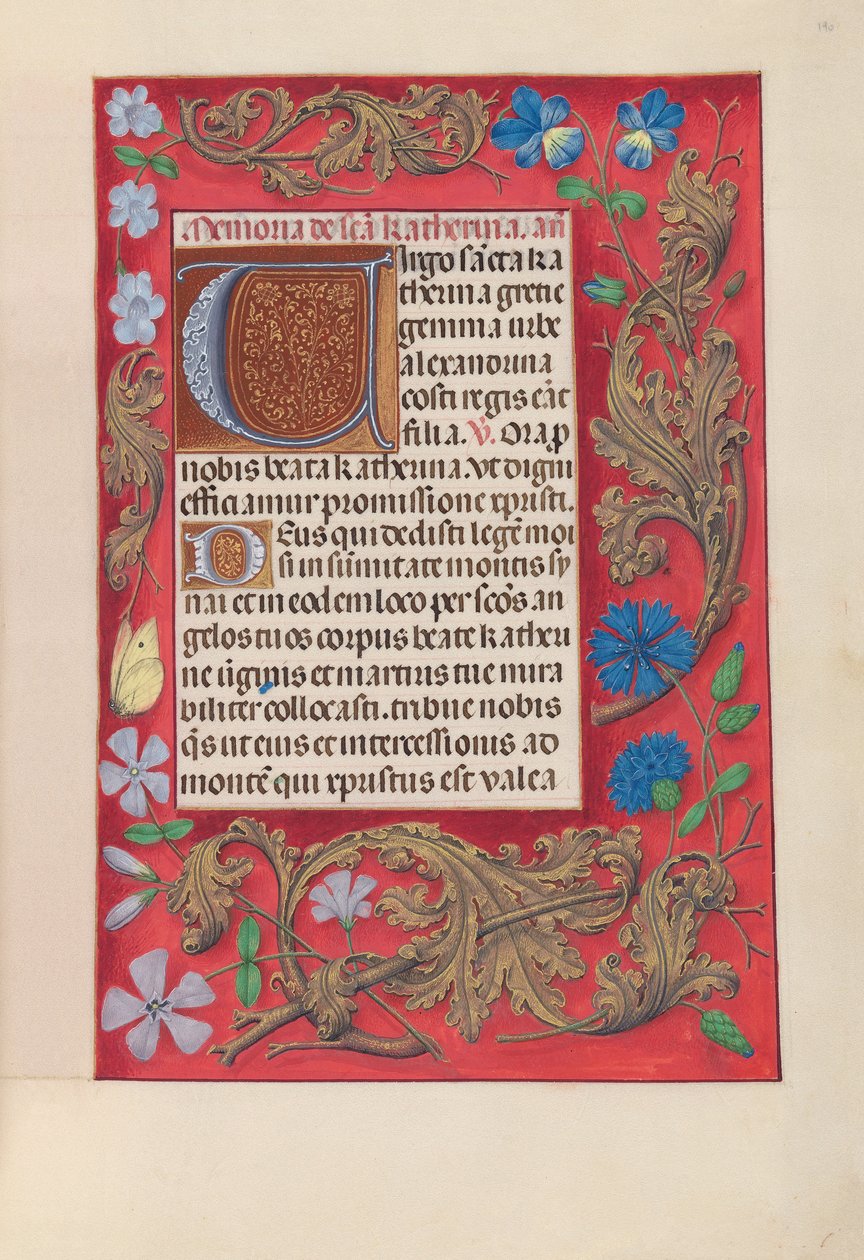 190
Memoria de scā Katherina. añ
Virgo sācta ka
therina grecie
gemma urbe
alexandrina
costi regis eāt
filia. V̷. Ora p̱
nobis beata katherina. Vt digni
efficiamur promissione xpristi.
Deus qui dedisti legē moi
si in sūmitate montis sy
nai et in eodem loco per scōs an
gelos tuos corpus beate katheri
ne ūginis et martiris tue mira
biliter collocasti. tribue nobis
q̄s ut eius et intercessionis ad
montē qui xpristus est valea